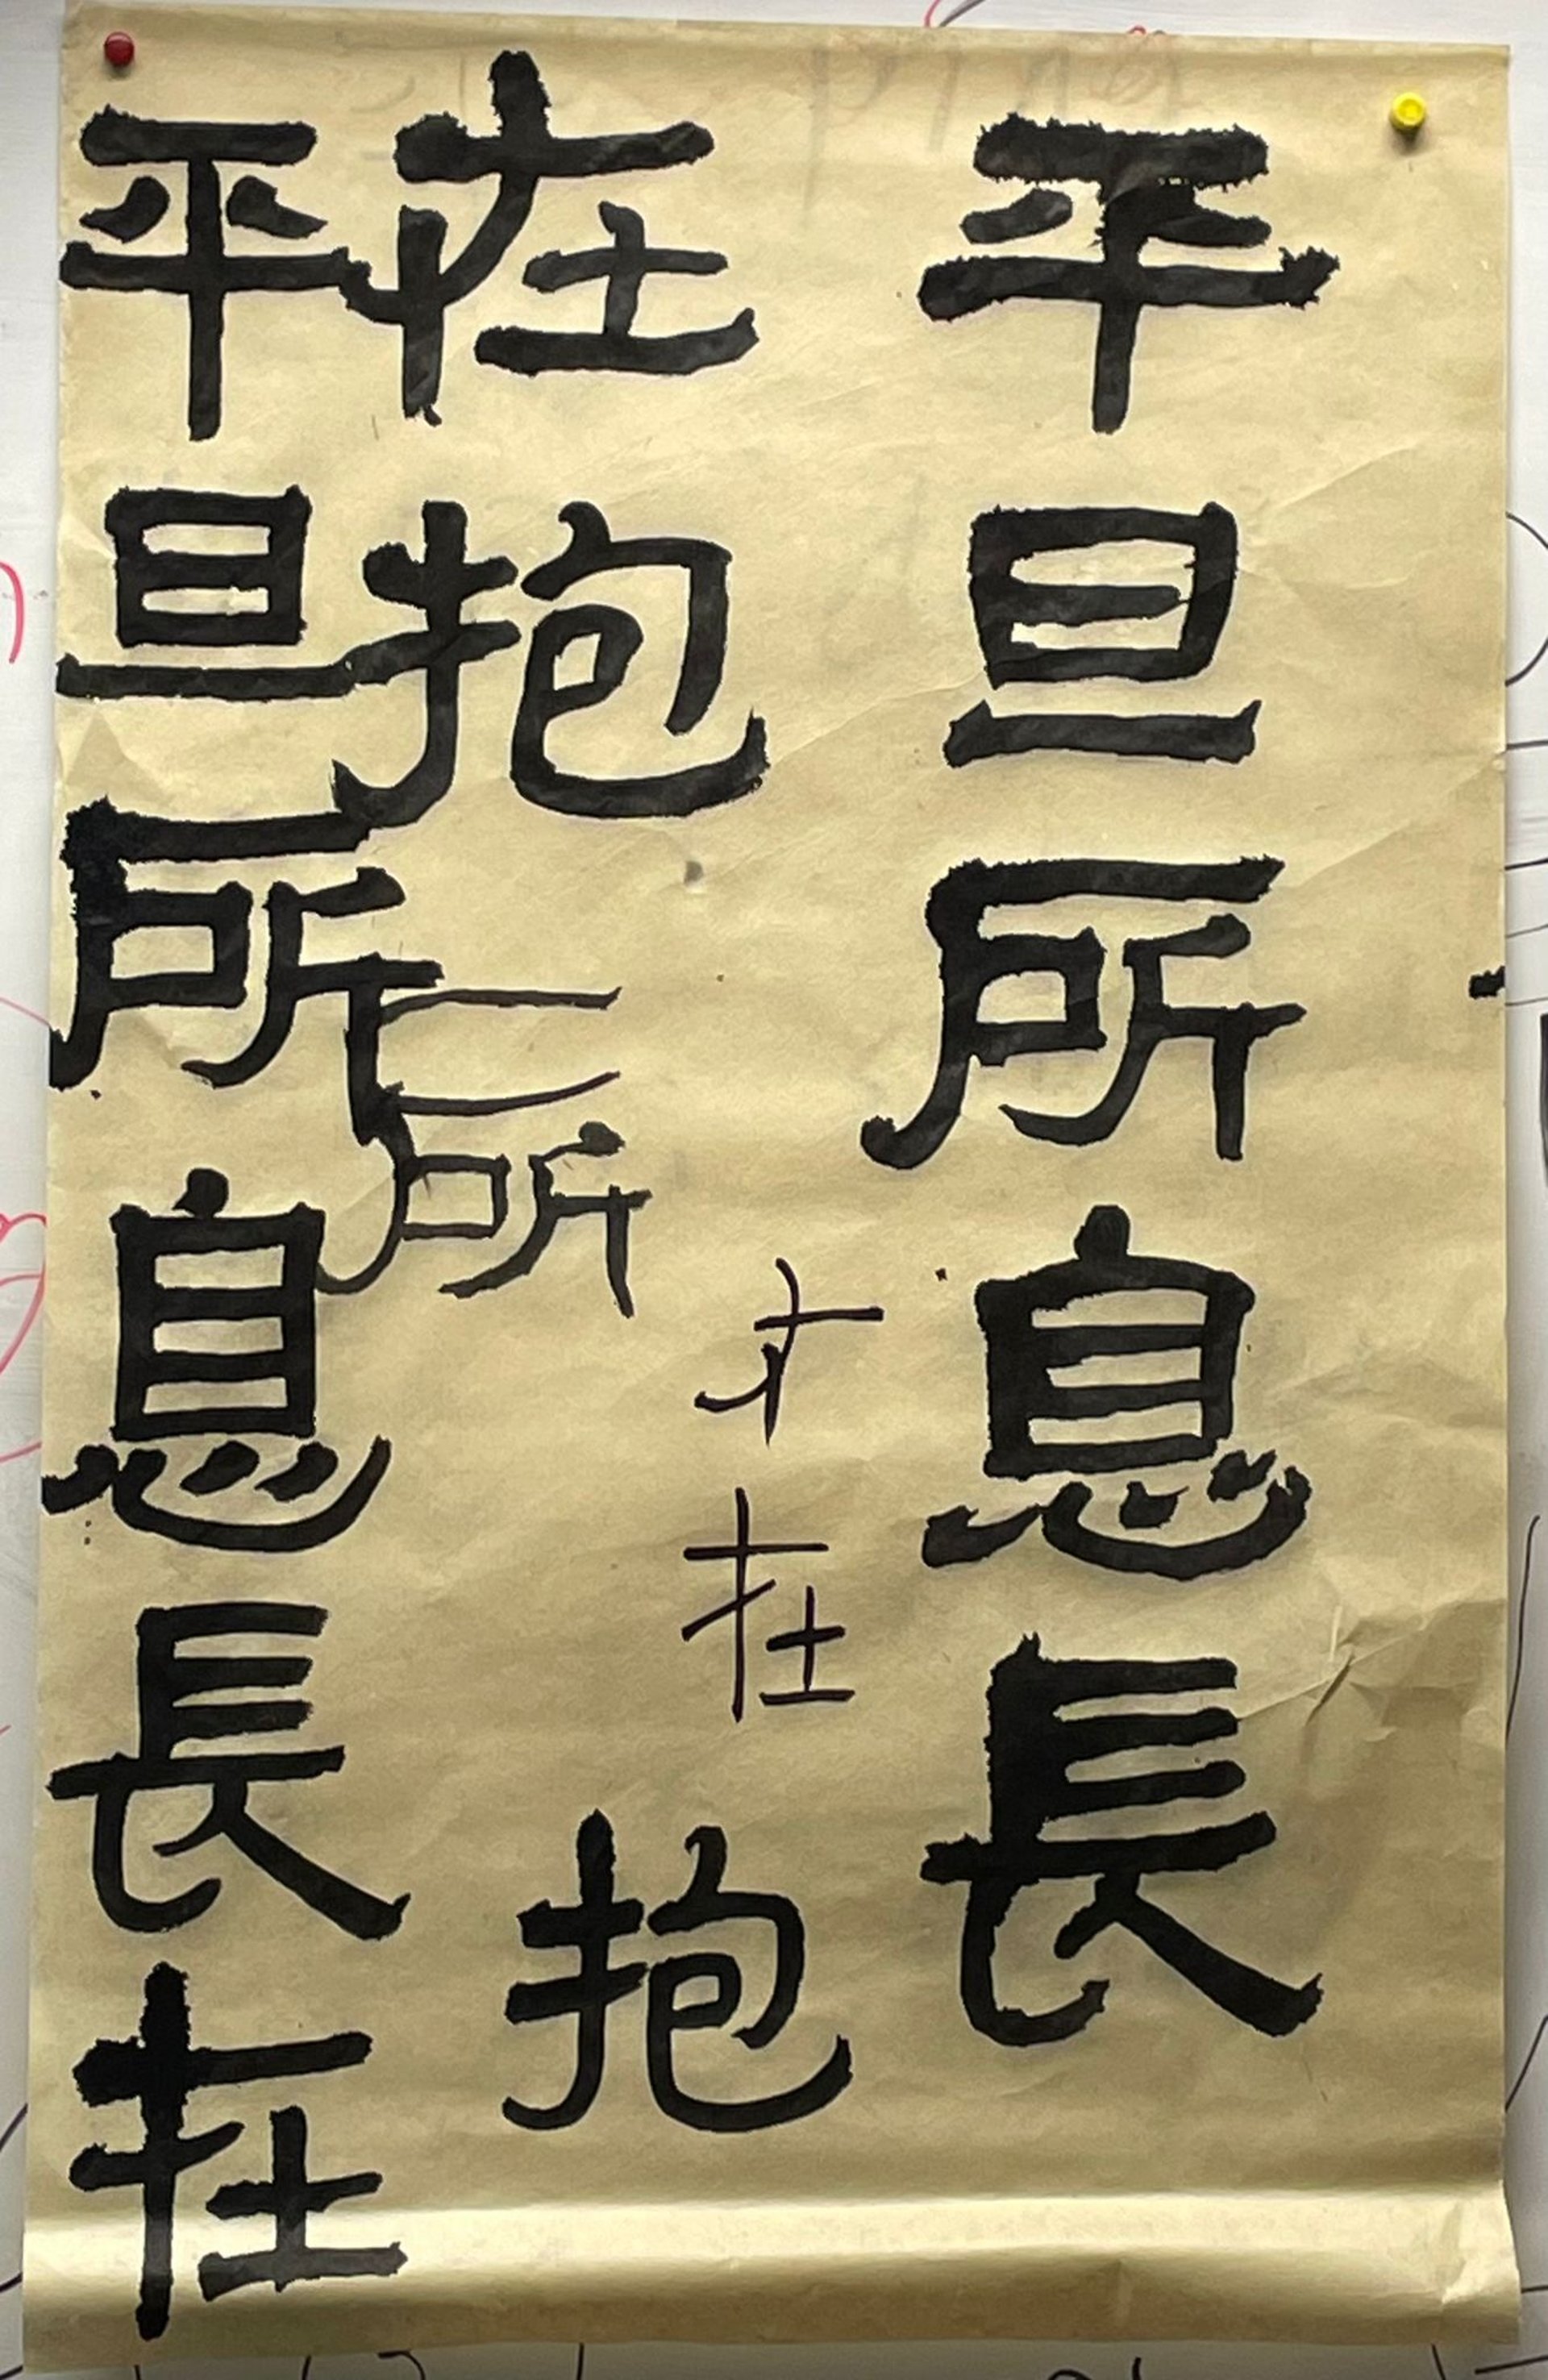 平旦所息長
在抱
所
才
在
抱
平旦所息長在